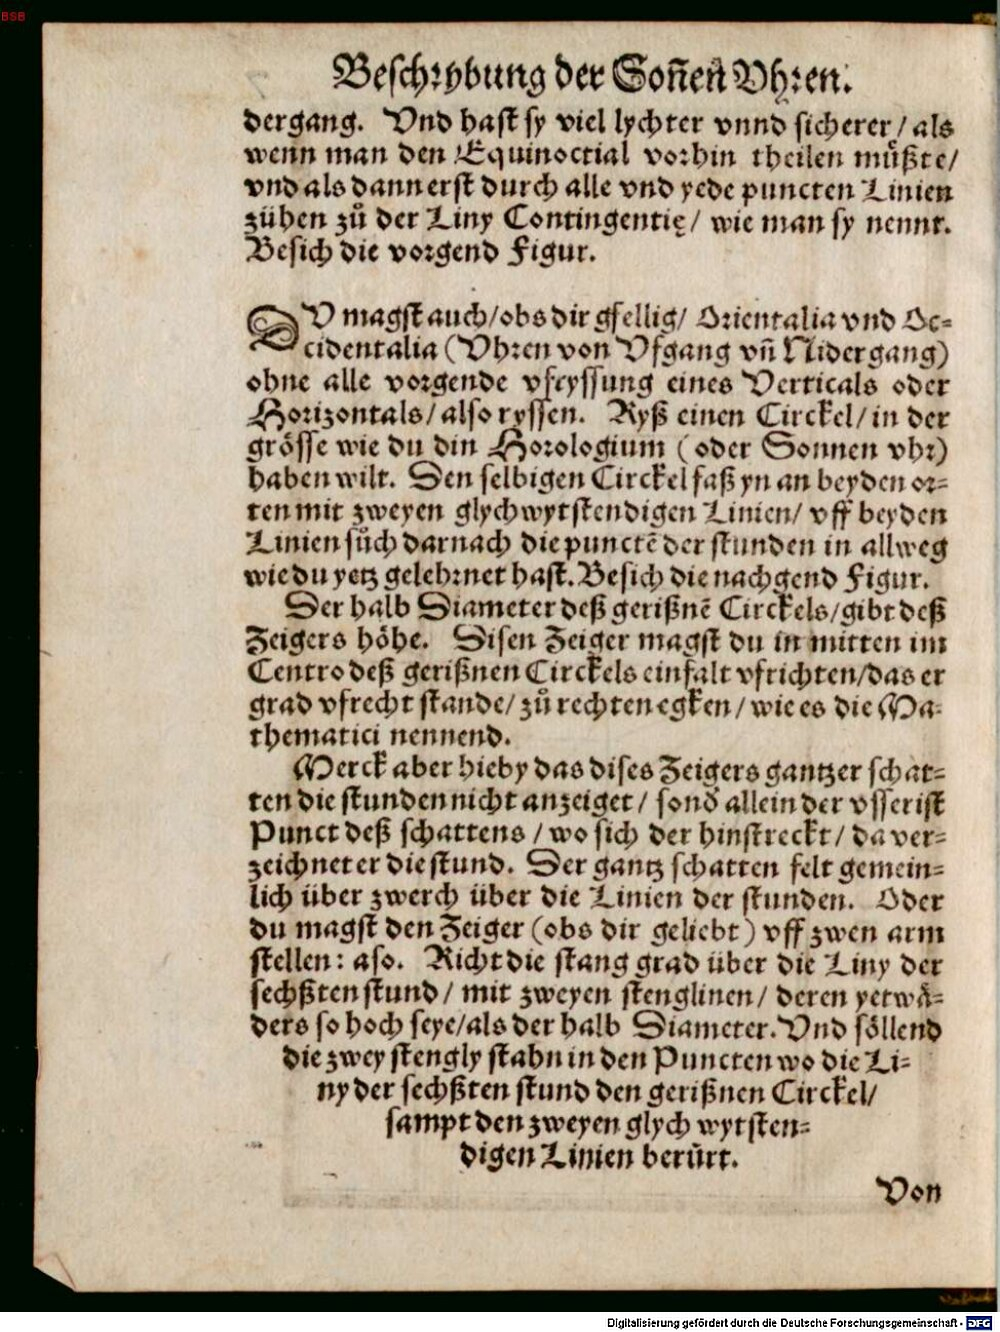 BSB
Beschrybung der Soñen Vhren.
dergang. Vnd hast sy viel lychter vnnd sicherer / als
wenn man den Equinoctial vorhin theilen müßte /
vnd als dann erst durch alle vnd yede puncten Linien
zühen zů der Liny Contingentię / wie man sy nennt.
Besich die vorgend Figur.
DV magst auch / obs dir gfellig / Orientalia vnd Oc=
cidentalia (Vhren von Vfgang vñ Nidergang)
ohne alle vorgende vfryssung eines Verticals oder
Horizontals / also ryssen. Ryß einen Circkel / in der
grösse wie du din Horologium (oder Sonnen vhr)
haben wilt. Den selbigen Circkel faß yn an beyden or=
ten mit zweyen glychwytstendigen Linien / vff beyden
Linien sůch darnach die punctē der stunden in allweg
wie du yetz gelehrnet hast. Besich die nachgend Figur.
Der halb Diameter deß gerißnē Circkels / gibt deß
Zeigers höhe. Disen Zeiger magst du in mitten im
Centro deß gerißnen Circkels einfalt vfrichten / das er
grad vfrecht stande / zů rechten egken / wie es die Ma=
thematici nennend.
Merck aber hieby das dises Zeigers gantzer schat=
ten die stunden nicht anzeiget / sonđ allein der vsserist
Punct deß schattens / wo sich der hinstreckt / da ver=
zeichnet er die stund. Der gantz schatten felt gemein=
lich über zwerch über die Linien der stunden. Oder
du magst den Zeiger (obs dir geliebt) vff zwen arm
stellen: aso. Richt die stang grad über die Liny der
sechßten stund / mit zweyen stenglinen / deren yetwä=
ders so hoch seye / als der halb Diameter. Vnd söllend
die zwey stengly stahn in den Puncten wo die Li=
ny der sechßten stund den gerißnen Circkel /
sampt den zweyen glych wytsten=
digen Linien berůrt.
Von
Digitalisierung gefördert durch die Deutsche Forschungsgemeinschaft - DFG